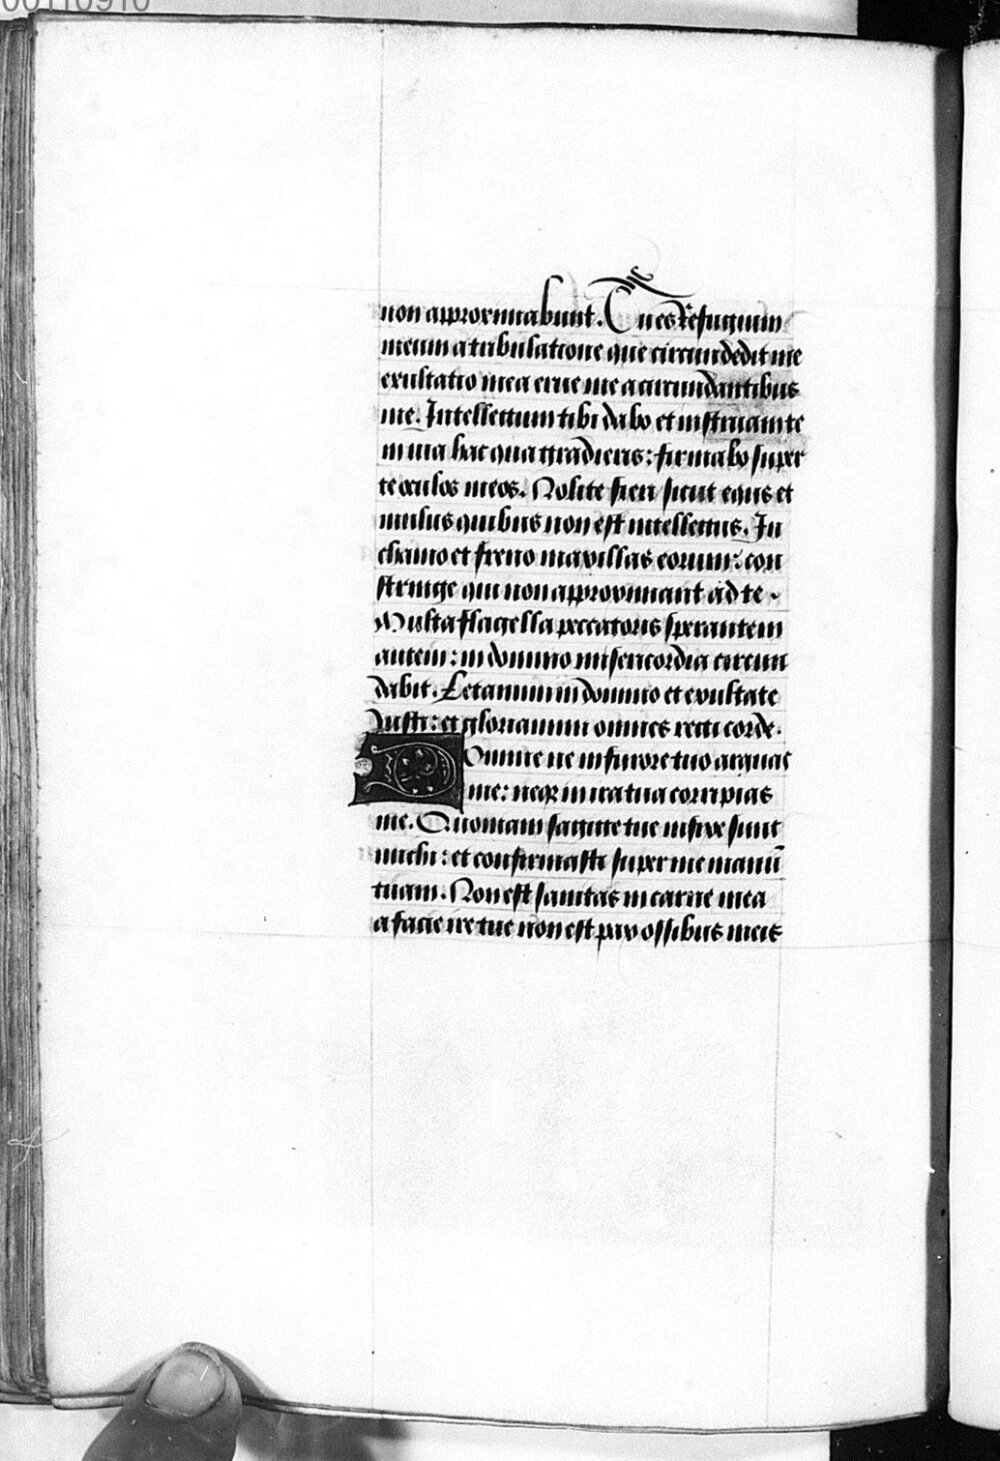 00110910
non approximabunt. Tu es Refugium
meum a tribulatione que circumdedit me
exultatio mea erue me a circumdantibus
me. Intellectum tibi dabo et instruam te
in uia hac qua gradieris: firmabo super
te oculos meos. Nolite fieri sicut equs et
mulus quibus non est intellectus. In
chamo et freno maxillas eorum: con
stringe qui non approximant ad te.
Multa flagella peccatoris sperantem
autem: in domino misericordia circun
dabit. Letamini in domino et exultate
Iusti: et gloriamini omnes recti corde.
Domine ne in furore tuo arguas
me: neqz in ira tua corripias
me. Quoniam sagitte tue infixe sunt
michi: et confirmasti super me manū
tuam. Non est sanitas in carne mea
a facie ire tue non est pax ossibus meis